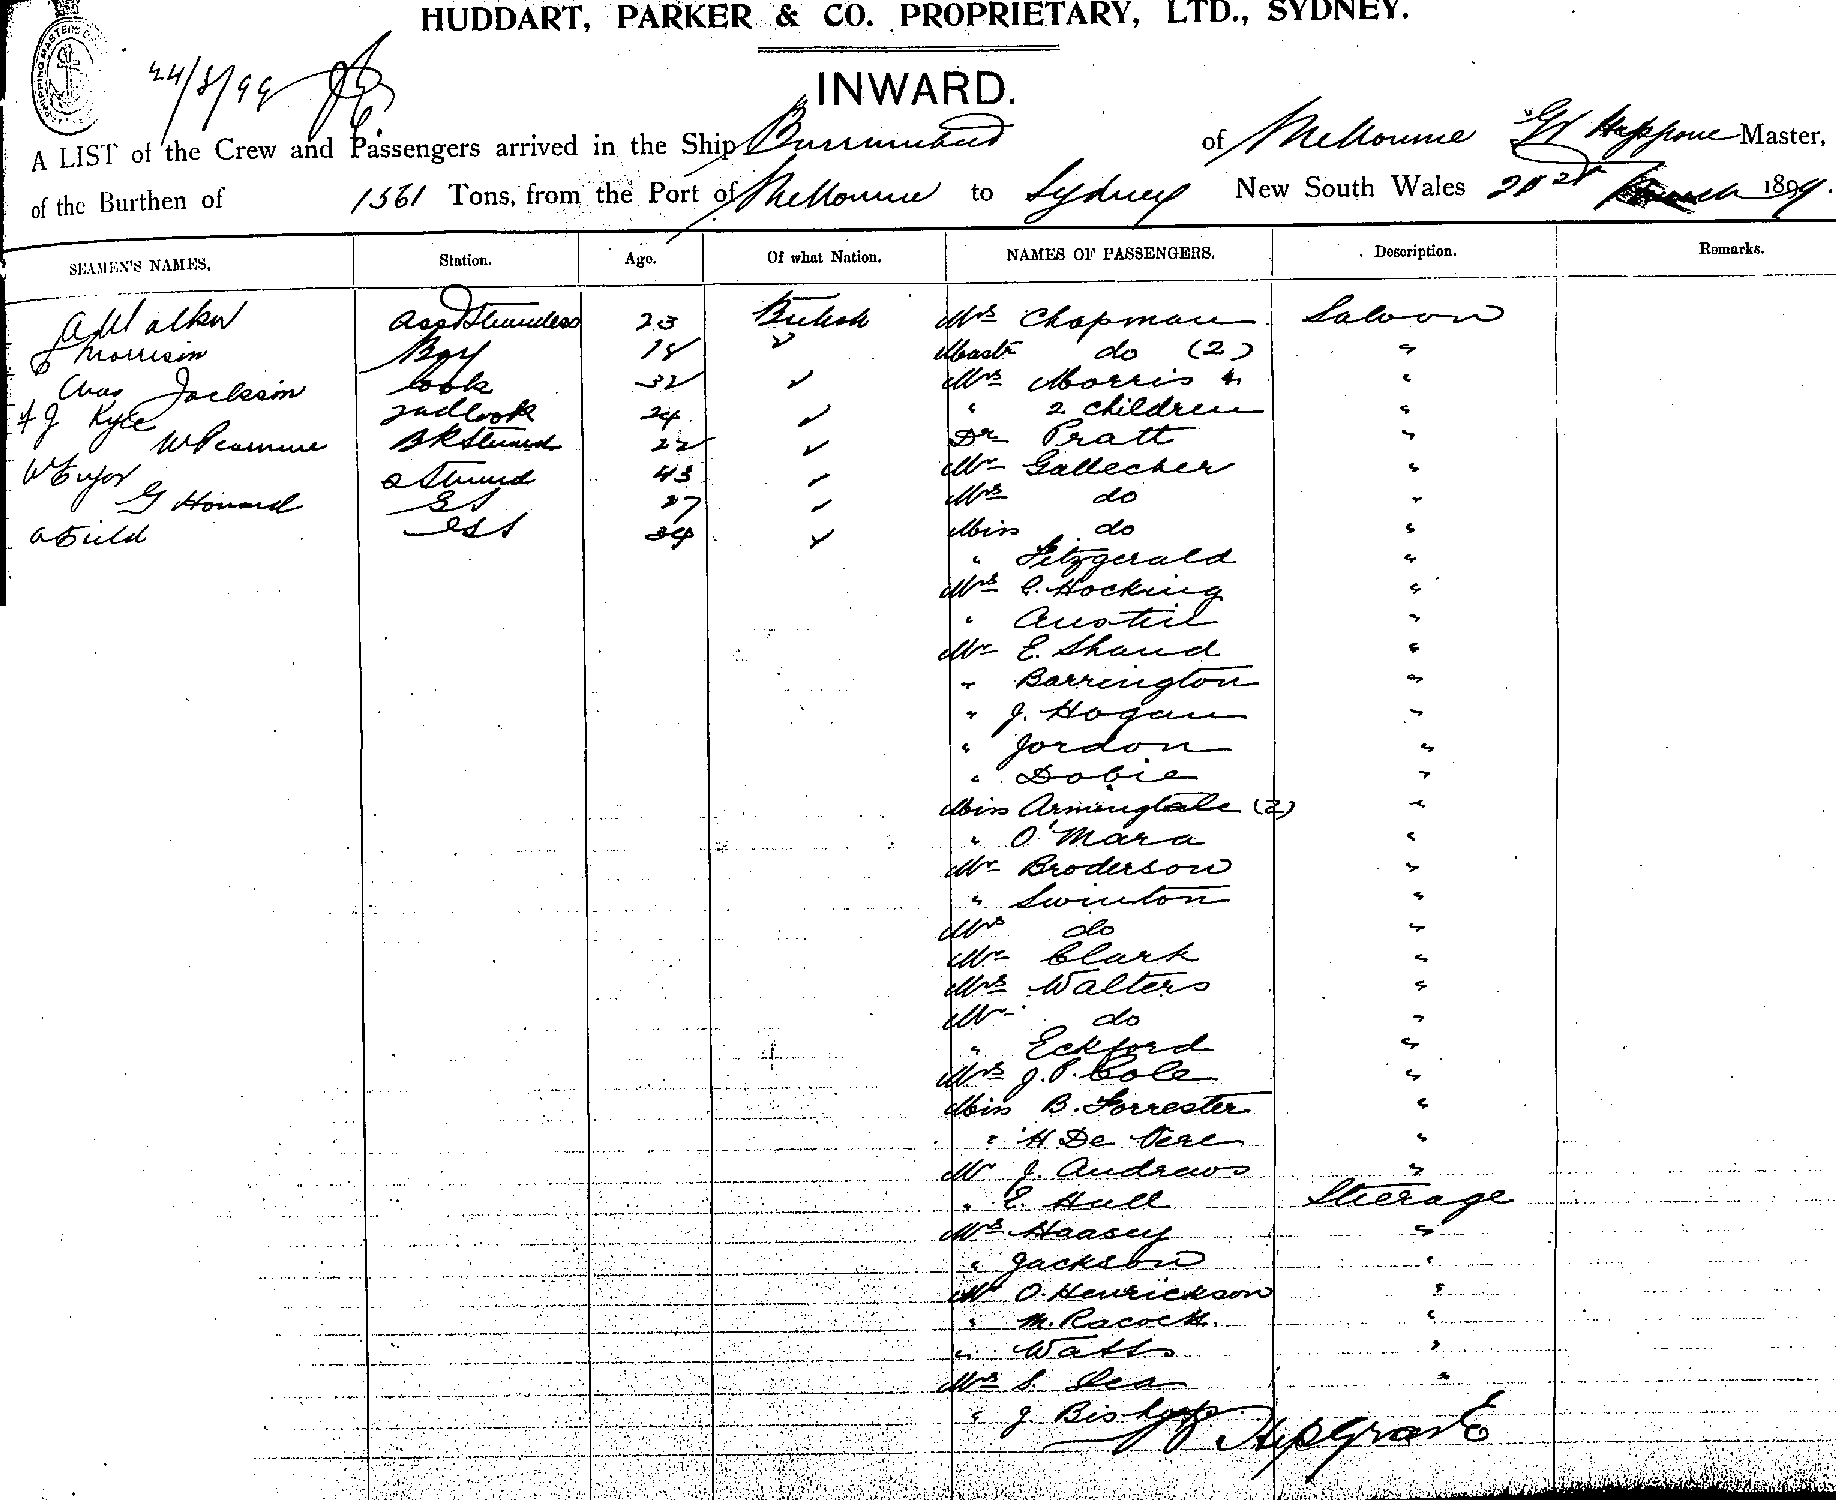 HUDDART, PARKER & CO. PROPRIETARY, LTD., SYDNEY.
24/3/99
INWARD.
A LIST of the Crew and Passengers arrived in the Ship Burrumbeet of Melbourne Master,
of the Burthen of 1561 Tons, from the Port of Melbourne to Sydney New South Wales 1899.
SEAMEN'S NAMES. Station. Age. Of what Nation. NAMES OF PASSENGERS. Description. Remarks.
A Walker 23 British Mrs Chapman Saloon
Morrison Boy 18 " Mastr do (2) "
Chas Jackson Cook 32 " Mrs Morris & "
J Kyle 2nd Cook 24 " " 2 children "
22 " Dr Pratt "
43 " Mr Gallecher "
G Howard 27 " Mrs do "
A Field 34 " Miss do "
" Fitzgerald "
Mrs C. Hocking "
" Austin "
Mr E. Shand "
" Barrington "
" J. Hogan "
" Jordon "
" Dobie "
Miss (2) "
" O'Mara "
Mr Broderson "
" Swinton "
Mrs do "
Mr Clark "
Mrs Walters "
Mr do "
" Eckford "
Mrs J. P. Cole "
Miss B. Forrester "
" H De Vere "
Mr J. Andrews "
" E. Hull Steerage
Mrs Haasey "
" Jackson "
Mr O. Henrickson "
" M. "
" Watts "
Mrs S. "
" J Bishop